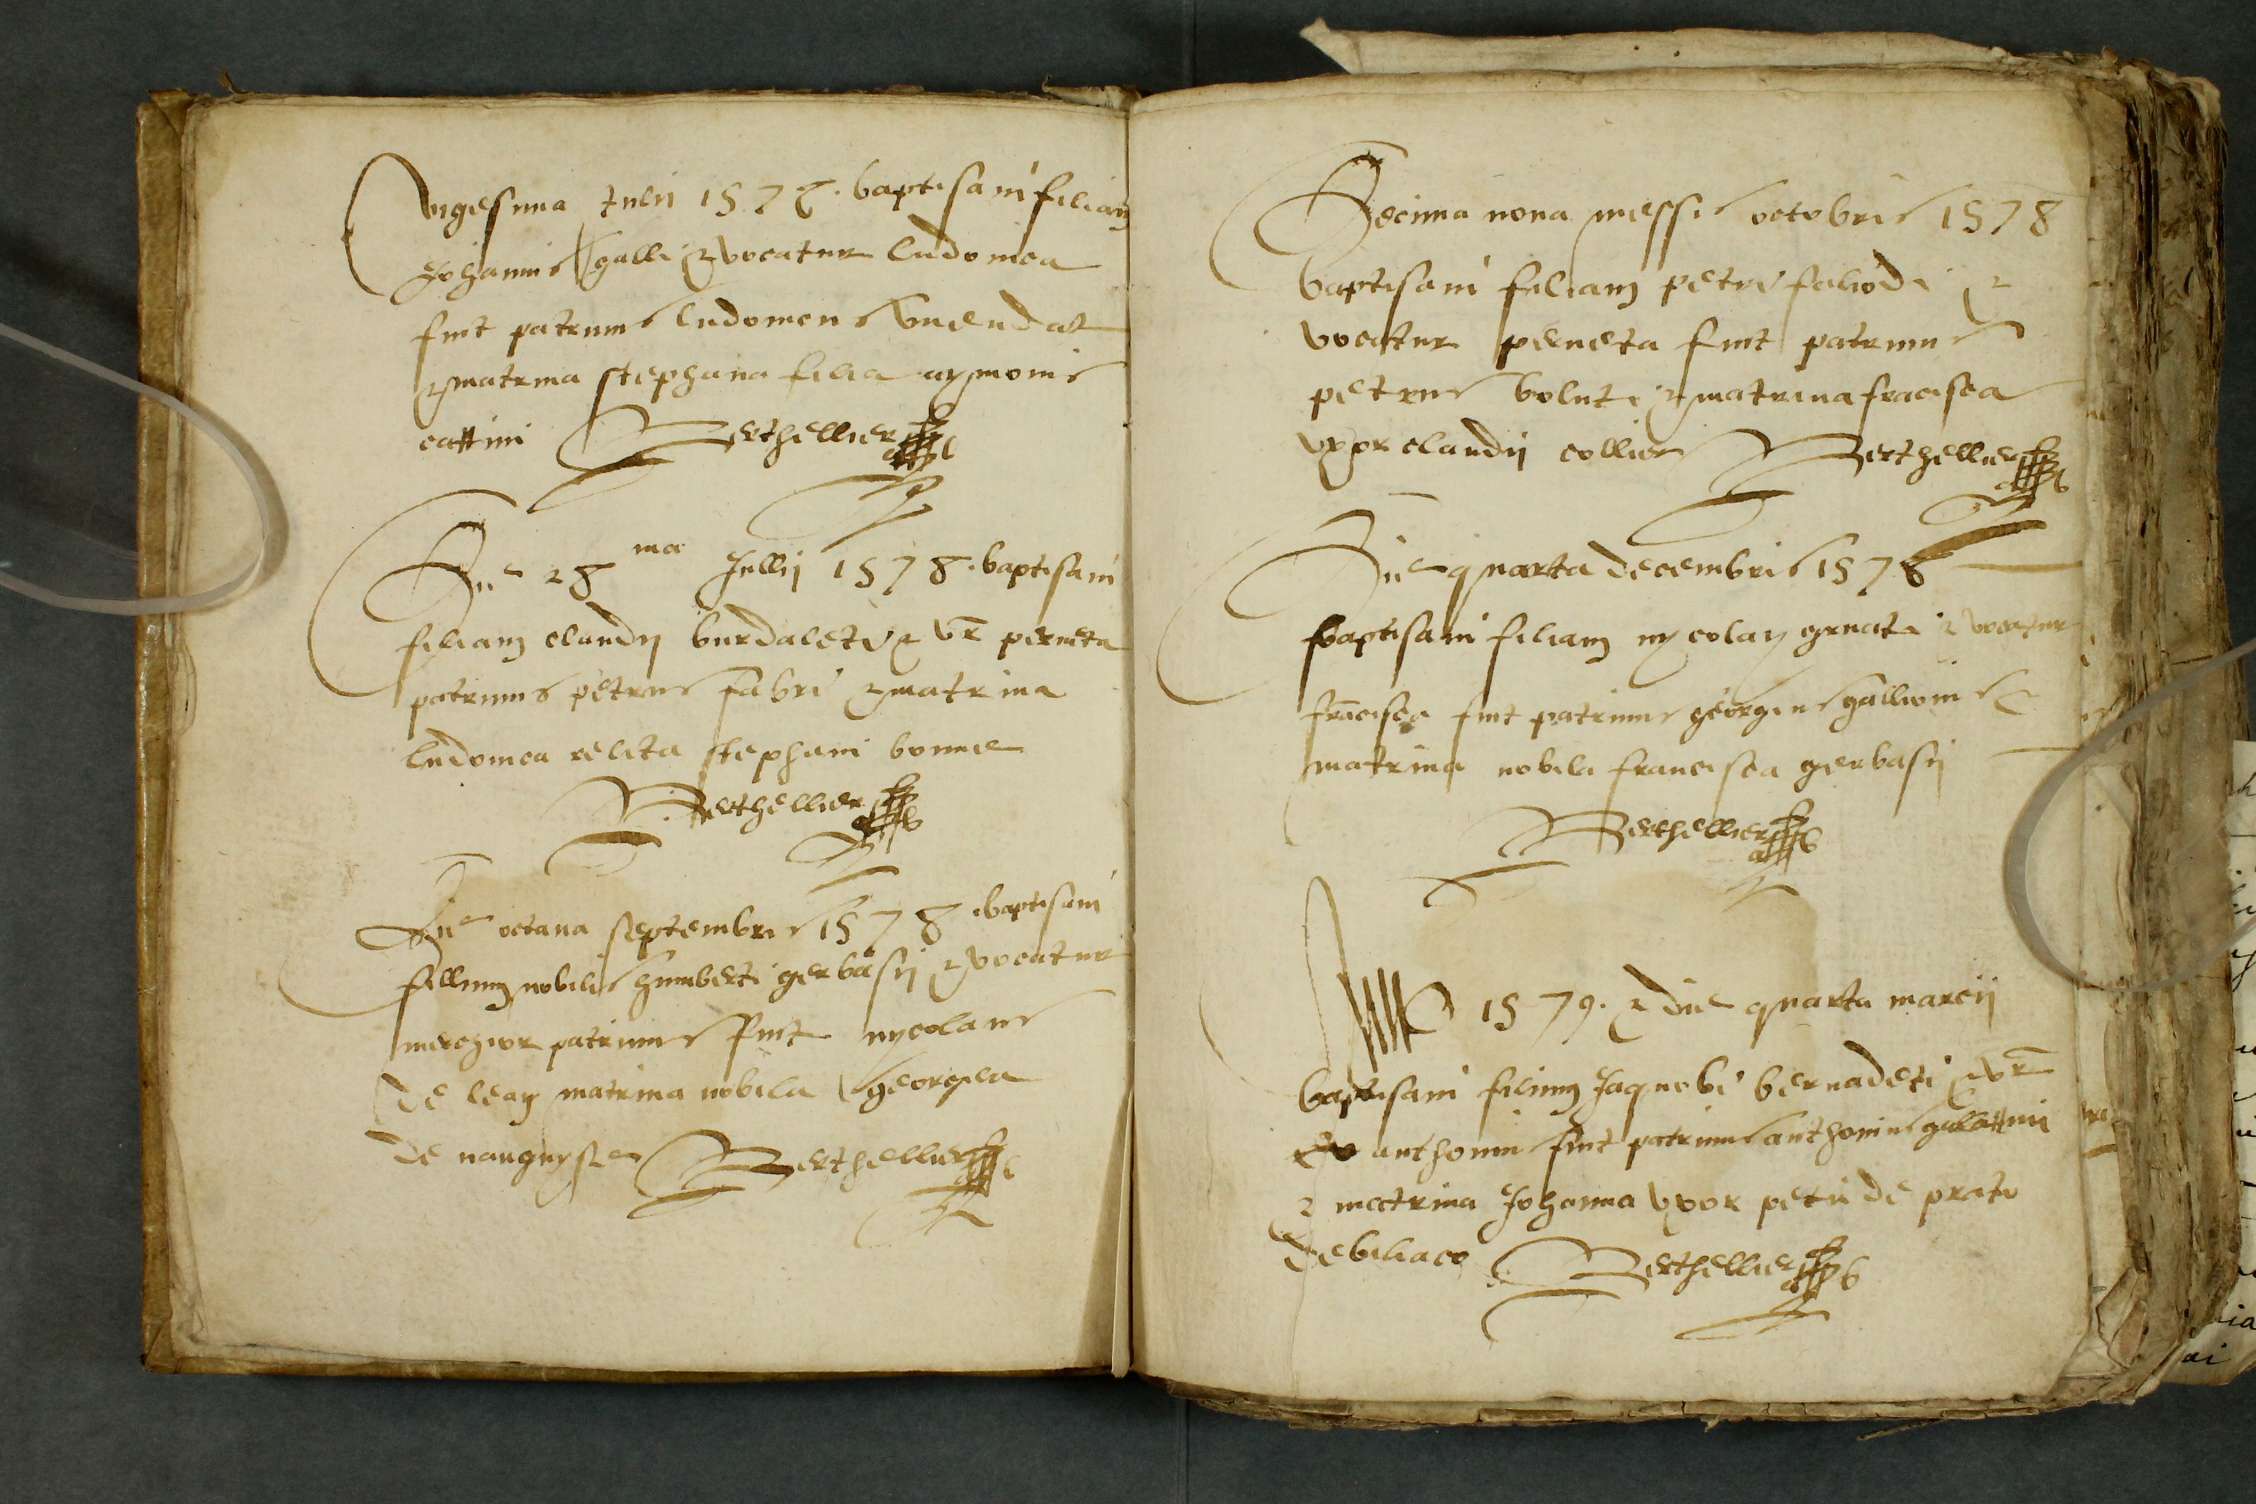 Vigesima Julii 1578. baptisavi filiam
Johannis galli & vocatur ludovica
fuit patrinus ludovicus
& matrina stephana filia aymonis
cattini Berthellier
Die 28 ma Jullij 1578. baptisavi
filiam claudij burdaleti & vr perneta
patrinus petrus fabri & matrina
ludovica relicta stephani bonne
Berthellier
Die octava septembris 1578. baptisavi
fillium nobilis humberti gerbasij & vocatur
melchior patrinus fuit nycolaus
de leay matrina nobila georgea
de Berthellier
Decima nona messis octobris 1578
baptisavi filiam petri faliodi &
vocatur perneta fuit patrinus
petrus boluti & matrina francisca
uxor claudij collier Berthellier
Die quarta decembris 1578
baptisavi filiam nycolay gruati & vocatur
francisca fuit patrinus georgius gallionis &
matrina nobila francisca gerbasij
Berthellier
1579. & die quarta marcij
baptisavi filium Jaquobi bernadeti & vr
anthonius fuit patrinus anthonius
& matrina Johanna uxor petri de prato
de biliaco Berthellier